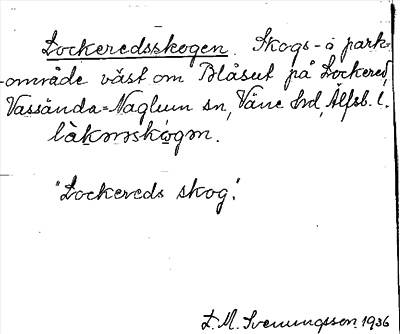 Lockeredsskogen. Skogs- o park-
område väst om Blåsut på Lockered,
Vassända-Naglum sn, Väne hd, Älfsb. l.
lȧkɯrskọ́gɯn.
"Lockereds skog".
L. M. Svenungsson 1936